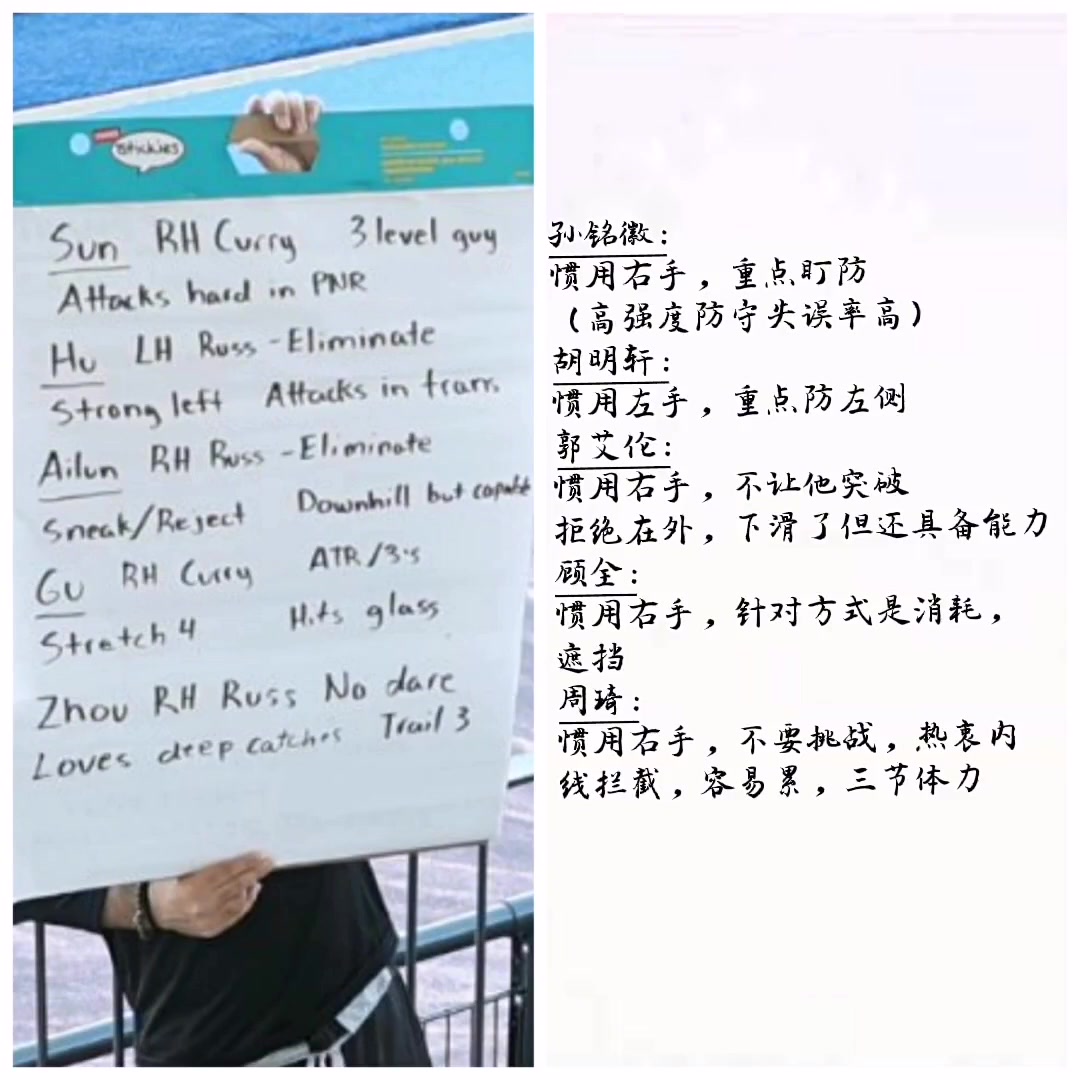 stickies
Sun RH Curry 3 level guy
Attacks hard in PNR
Hu LH Russ - Eliminate
Strong left Attacks in tran.
Ailun RH Russ - Eliminate
Sneak/Reject Downhill but capable
Gu RH Curry ATR/3's
Stretch 4 Hits glass
Zhou RH Russ No dare
Loves deep catches Trail 3
孙铭徽:
惯用右手，重点盯防
(高强度防守失误率高)
胡明轩:
惯用左手，重点防左侧
郭艾伦:
惯用右手，不让他突破
拒绝在外，下滑了但还具备能力
顾全:
惯用右手，针对方式是消耗，
遮挡
周琦:
惯用右手，不要挑战，热衷内
线拦截，容易累，三节体力